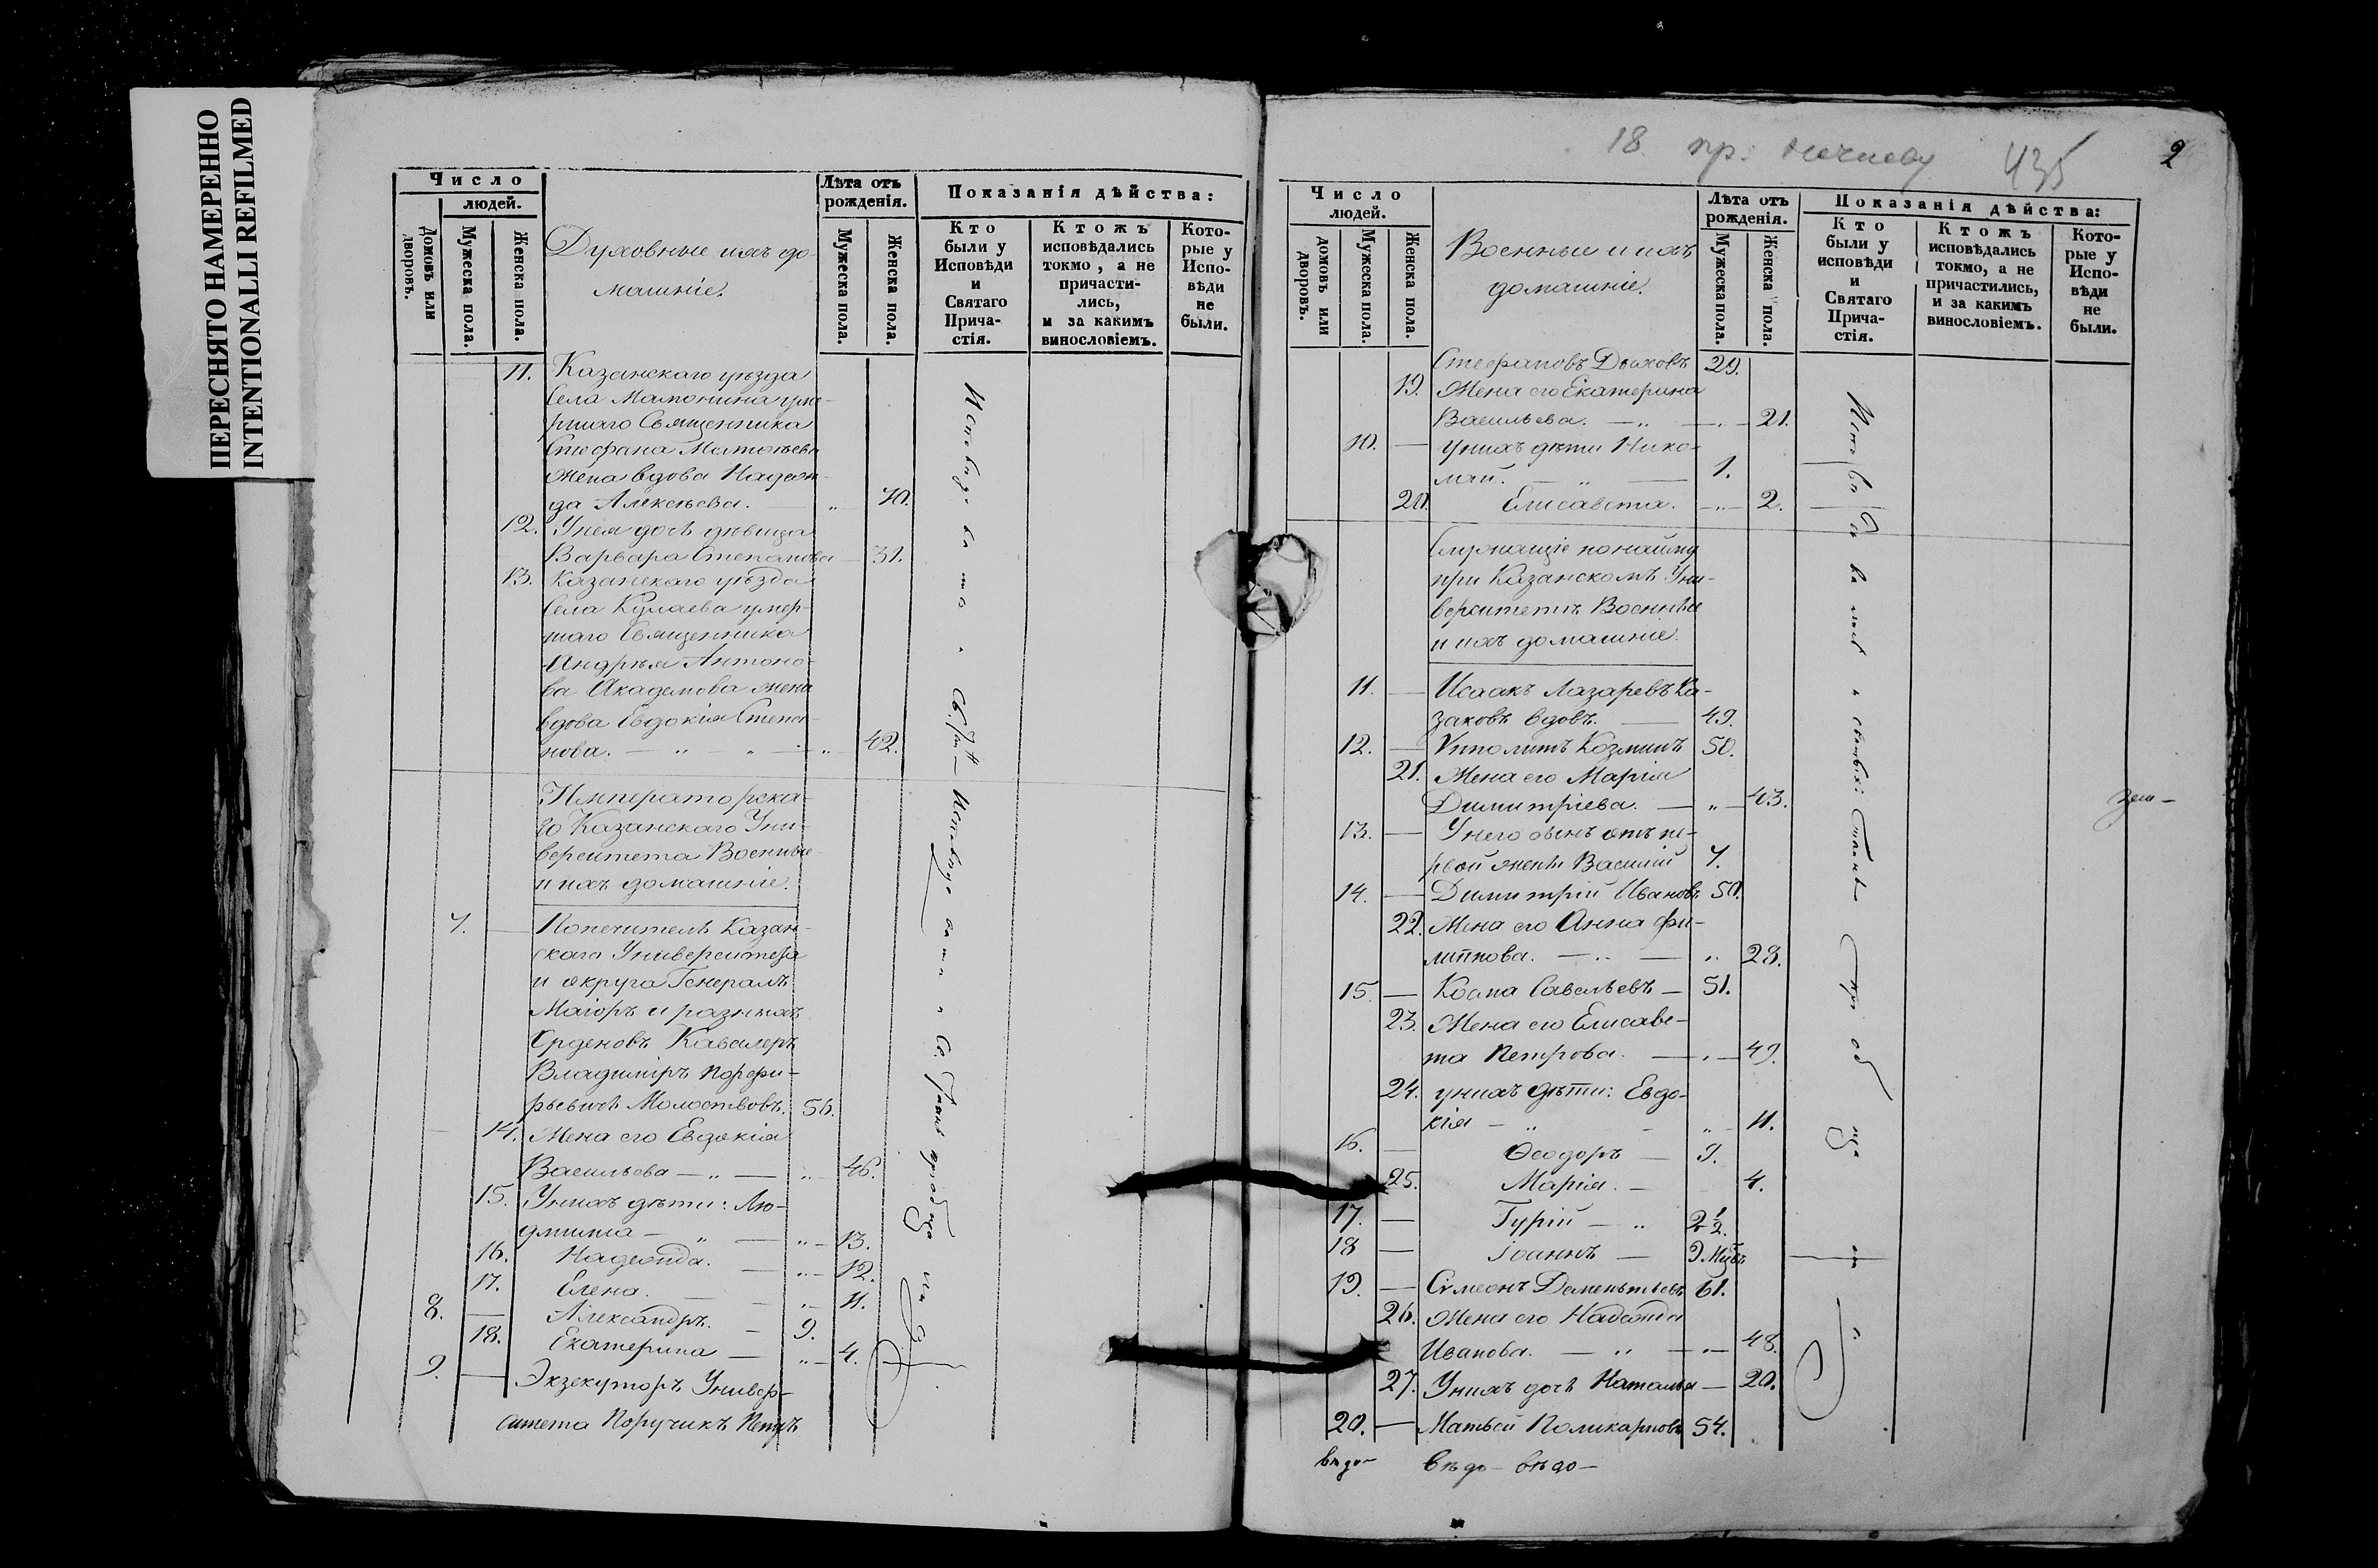 ПЕРЕСНЯТО НАМЕРЕННО
INTENTIONALLI REFILMED
Число
людей.
Домовъ или дворовъ.
Мужеска пола.
Женска пола.
Духовные ихъ до-
машніе.
Лѣта отъ рожденія.
Мужеска пола.
Женска пола.
Показанія дѣйства:
Кто были у Исповѣди и Святаго Прича-стія.
Ктожъ исповѣдались токмо, а не причасти-лись, и за какимъ винословіемъ.
Кото-рые у Испо-вѣди не были.
11. Казанскаго уѣзда
села Мамонина уме-
ршаго Священника
Стефана Матвѣева
жена вдова Надеж-
да Алексѣева. — „ 70.
12. У нея дочь дѣвица
Варвара Степанова — 31.
13. Казанскаго уѣзда
села Кулаева умер-
шаго Священника
Андрея Антоно-
ва Академова жена
вдова Евдокія Степа-
нова. — „ — „ — „ — 42.
Императорска-
го Казанскаго Уни-
верситета Военные
и ихъ домашніе.
7. — Попечитель Казан-
скаго Университета
и округа Генералъ
Маіоръ и разныхъ
Орденовъ Кавалеръ
Владиміръ Порфи-
рьевичъ Молоствовъ. 56.
14. Жена его Евдокія
Васильева — „ — „ 46.
15. У нихъ дѣти: Лю-
дмила — „ — „ — 13.
16. Надежда. — „ — 12.
17. Елена. — „ — 11.
8. — Александръ. — 9.
18. Екатерина — „ — 4.
9. — Экзекуторъ Универ-
ситета Поручикъ Петръ
18. пр.
435
2
Число
людей.
домовъ или дворовъ.
Мужеска пола.
Женска пола.
Военные и ихъ
домашніе.
Лѣта отъ рожденія.
Мужеска пола.
Женска пола.
Показанія дѣйства:
Кто были у исповѣди и Святаго Прича-стія.
Ктожъ исповѣдались токмо, а не причастились, и за какимъ винословіемъ.
Кото-рые у Испо-вѣди не были.
Стефановъ Дьяховъ 29.
19. Жена его Екатерина
Васильева. — „ — „ — 21.
10. — у нихъ дѣти Нико-
лай. — „ — 1.
20. Елисавета. — „ — 2.
Служащіе по найму
при Казанскомъ Уни-
верситетѣ Военные
и ихъ домашніе.
11. — Исаакъ Лазаревъ Ка-
заковъ вдовъ. — 49.
12. — Ипполитъ Козминъ 50.
21. Жена его Марія
Димитріева. — „ — 43.
13. — У него сынъ отъ пе-
рвой жены Василій 7.
14. — Димитрій Ивановъ 50.
22. Жена его Анна Фи-
липпова. — „ — „ 28.
15. — Косма Савельевъ — 51.
23. Жена его Елисаве-
та Петрова. — „ — 49.
24. у нихъ дѣти: Евдо-
кія — „ — „ — 11.
16. — Ѳеодоръ — 9.
25. Марія. — 4.
17. — Гурій — „ 2 1/2.
18 — Іоаннъ — 9. мѣс.
19. — Сѵмеонъ Дементьевъ 61.
26. Жена его Надежда
Иванова. — „ — „ — 48.
27. У нихъ дочь Наталья — 20.
20. — Матвей Поликарповъ 54.
вѣдо- вѣдо- вѣдо-